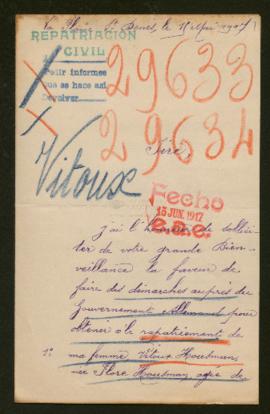 St Denis, le 11 Mai 1917
REPATRIACIÓN
CIVIL
Pedir informes
que se hace así
Devolver
29633
29634
Vitoux
Sire,
Fecho
15 JUN. 1917
e.a.e.
j'ai l'honneur de sollici-
ter de votre grande Bien-
veillance la faveur de
faire des démarches auprès du
Gouvernement Allemand pour
obtenir le rapatriement de
1° ma femme Vitoux
née Flore âgée de